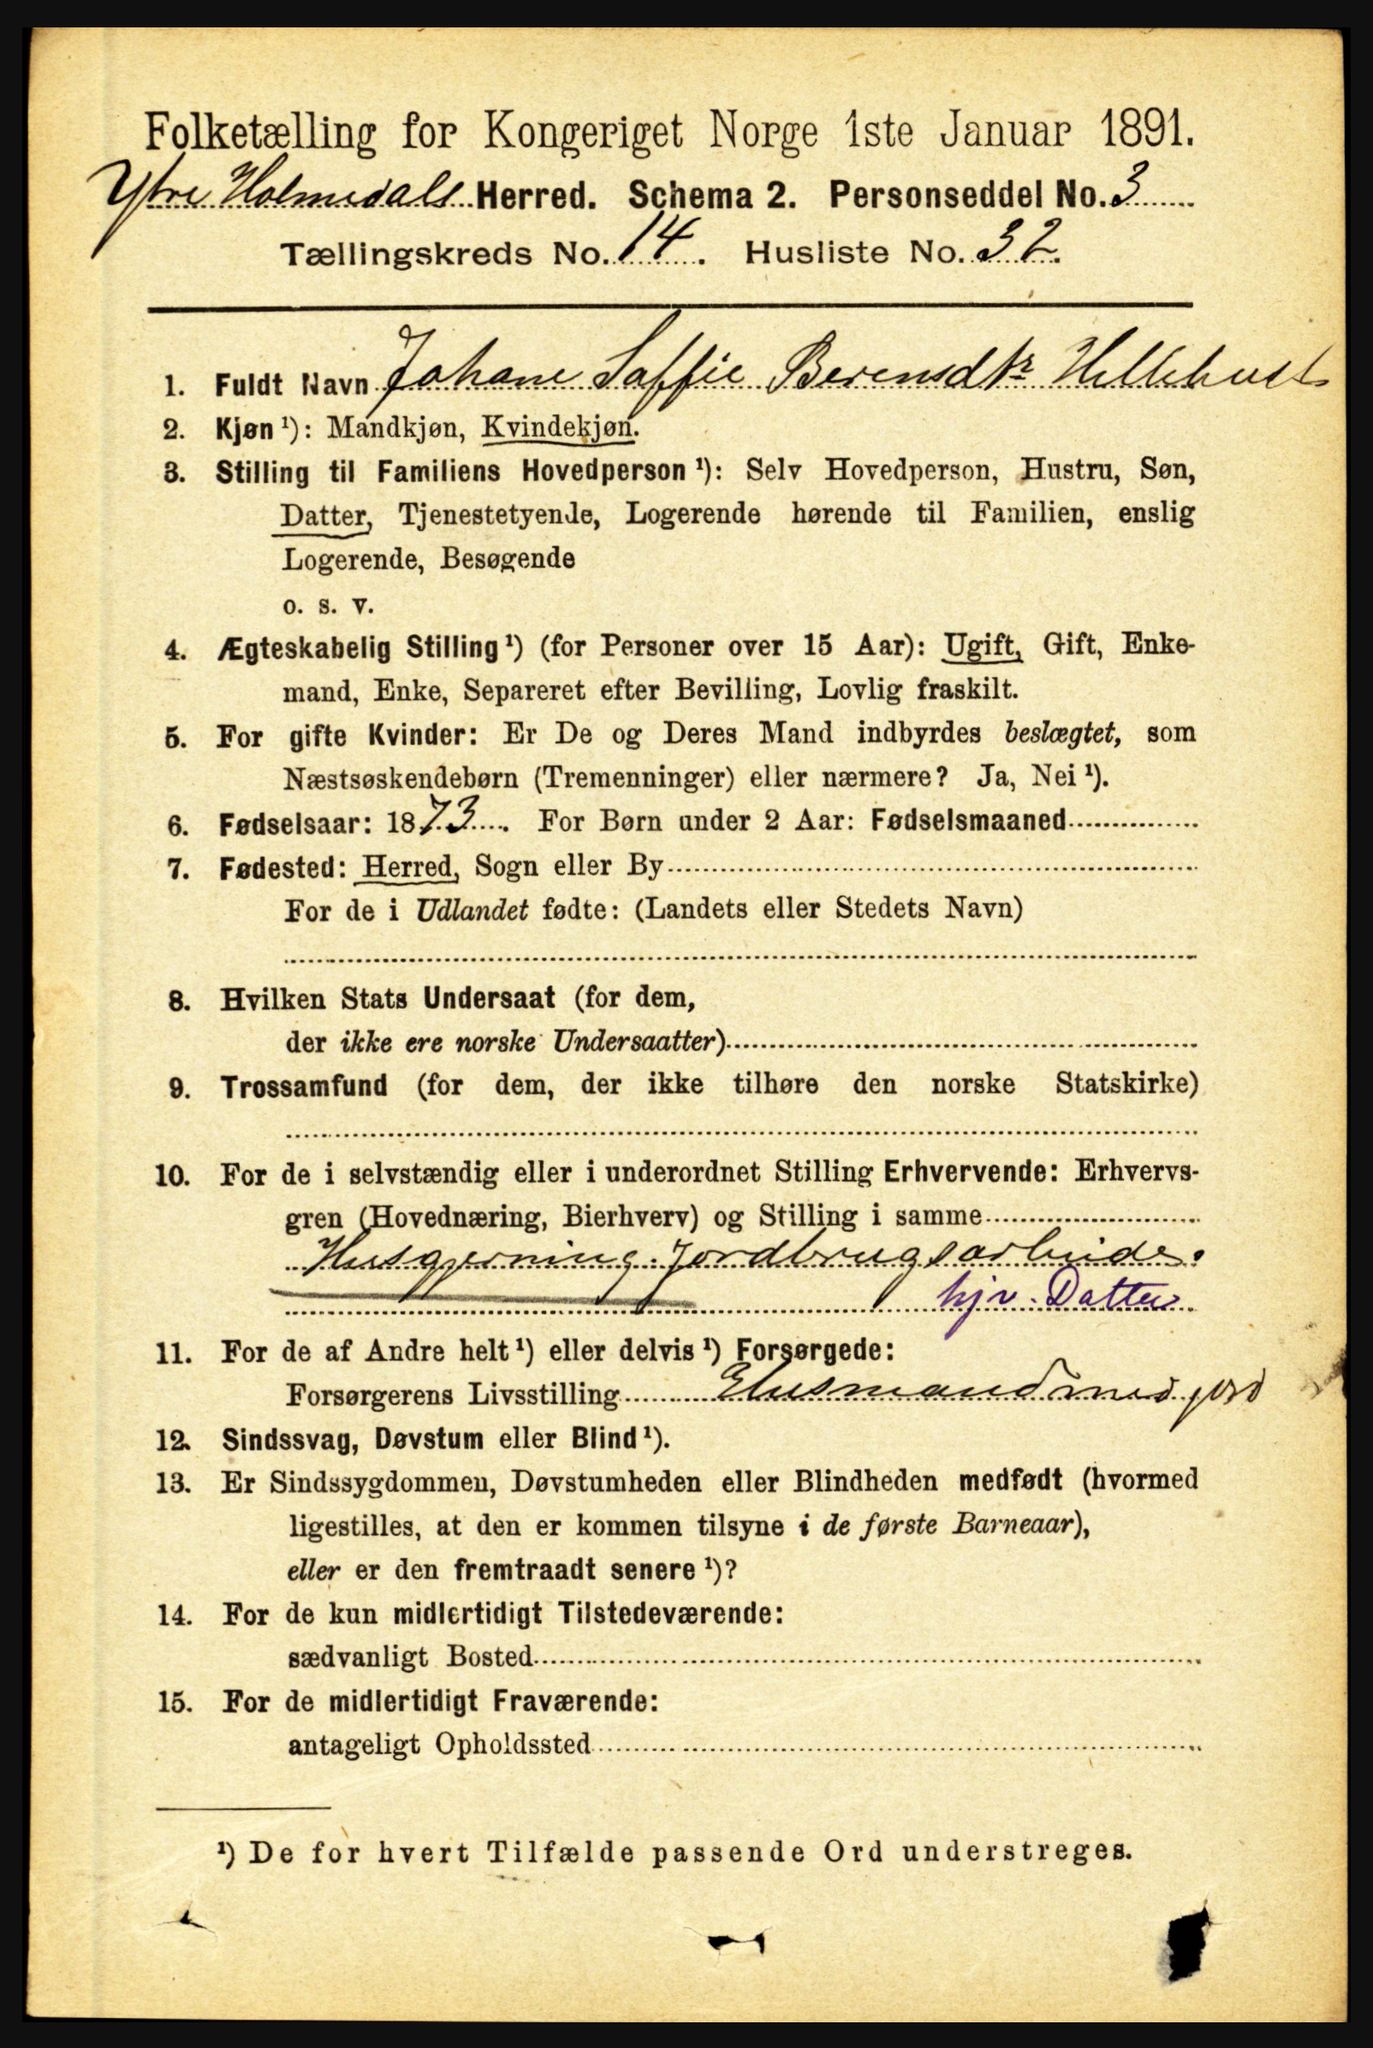 Folketælling for Kongeriget Norge 1ste Januar 1891.
Ytre Holmedals Herred. Schema 2. Personseddel No. 3
Tællingskreds No. 14. Husliste No. 32.
1. Fuldt Navn Johane Saffie Berensdtr Hellehust
2. Kjøn¹): Mandkjøn, Kvindekjøn.
3. Stilling til Familiens Hovedperson¹): Selv Hovedperson, Hustru, Søn,
Datter, Tjenestetyende, Logerende hørende til Familien, enslig
Logerende, Besøgende
o. s. v.
4. Ægteskabelig Stilling¹) (for Personer over 15 Aar): Ugift, Gift, Enke-
mand, Enke, Separeret efter Bevilling, Lovlig fraskilt.
5. For gifte Kvinder: Er De og Deres Mand indbyrdes beslægtet, som
Næstsøskendebørn (Tremenninger) eller nærmere? Ja, Nei¹).
6. Fødselsaar: 1873. For Børn under 2 Aar: Fødselsmaaned
7. Fødested: Herred, Sogn eller By
For de i Udlandet fødte: (Landets eller Stedets Navn)
8. Hvilken Stats Undersaat (for dem,
der ikke ere norske Undersaatter)
9. Trossamfund (for dem, der ikke tilhøre den norske Statskirke)
10. For de i selvstændig eller i underordnet Stilling Erhvervende: Erhvervs-
gren (Hovednæring, Bierhverv) og Stilling i samme
Husgjerning. Jordbrugsarbeide.
hjv. Datter
11. For de af Andre helt¹) eller delvis¹) Forsørgede:
Forsørgerens Livsstilling Husmand med jord
12. Sindssvag, Døvstum eller Blind¹).
13. Er Sindssygdommen, Døvstumheden eller Blindheden medfødt (hvormed
ligestilles, at den er kommen tilsyne i de første Barneaar),
eller er den fremtraadt senere¹)?
14. For de kun midlertidigt Tilstedeværende:
sædvanligt Bosted
15. For de midlertidigt Fraværende:
antageligt Opholdssted
¹) De for hvert Tilfælde passende Ord understreges.